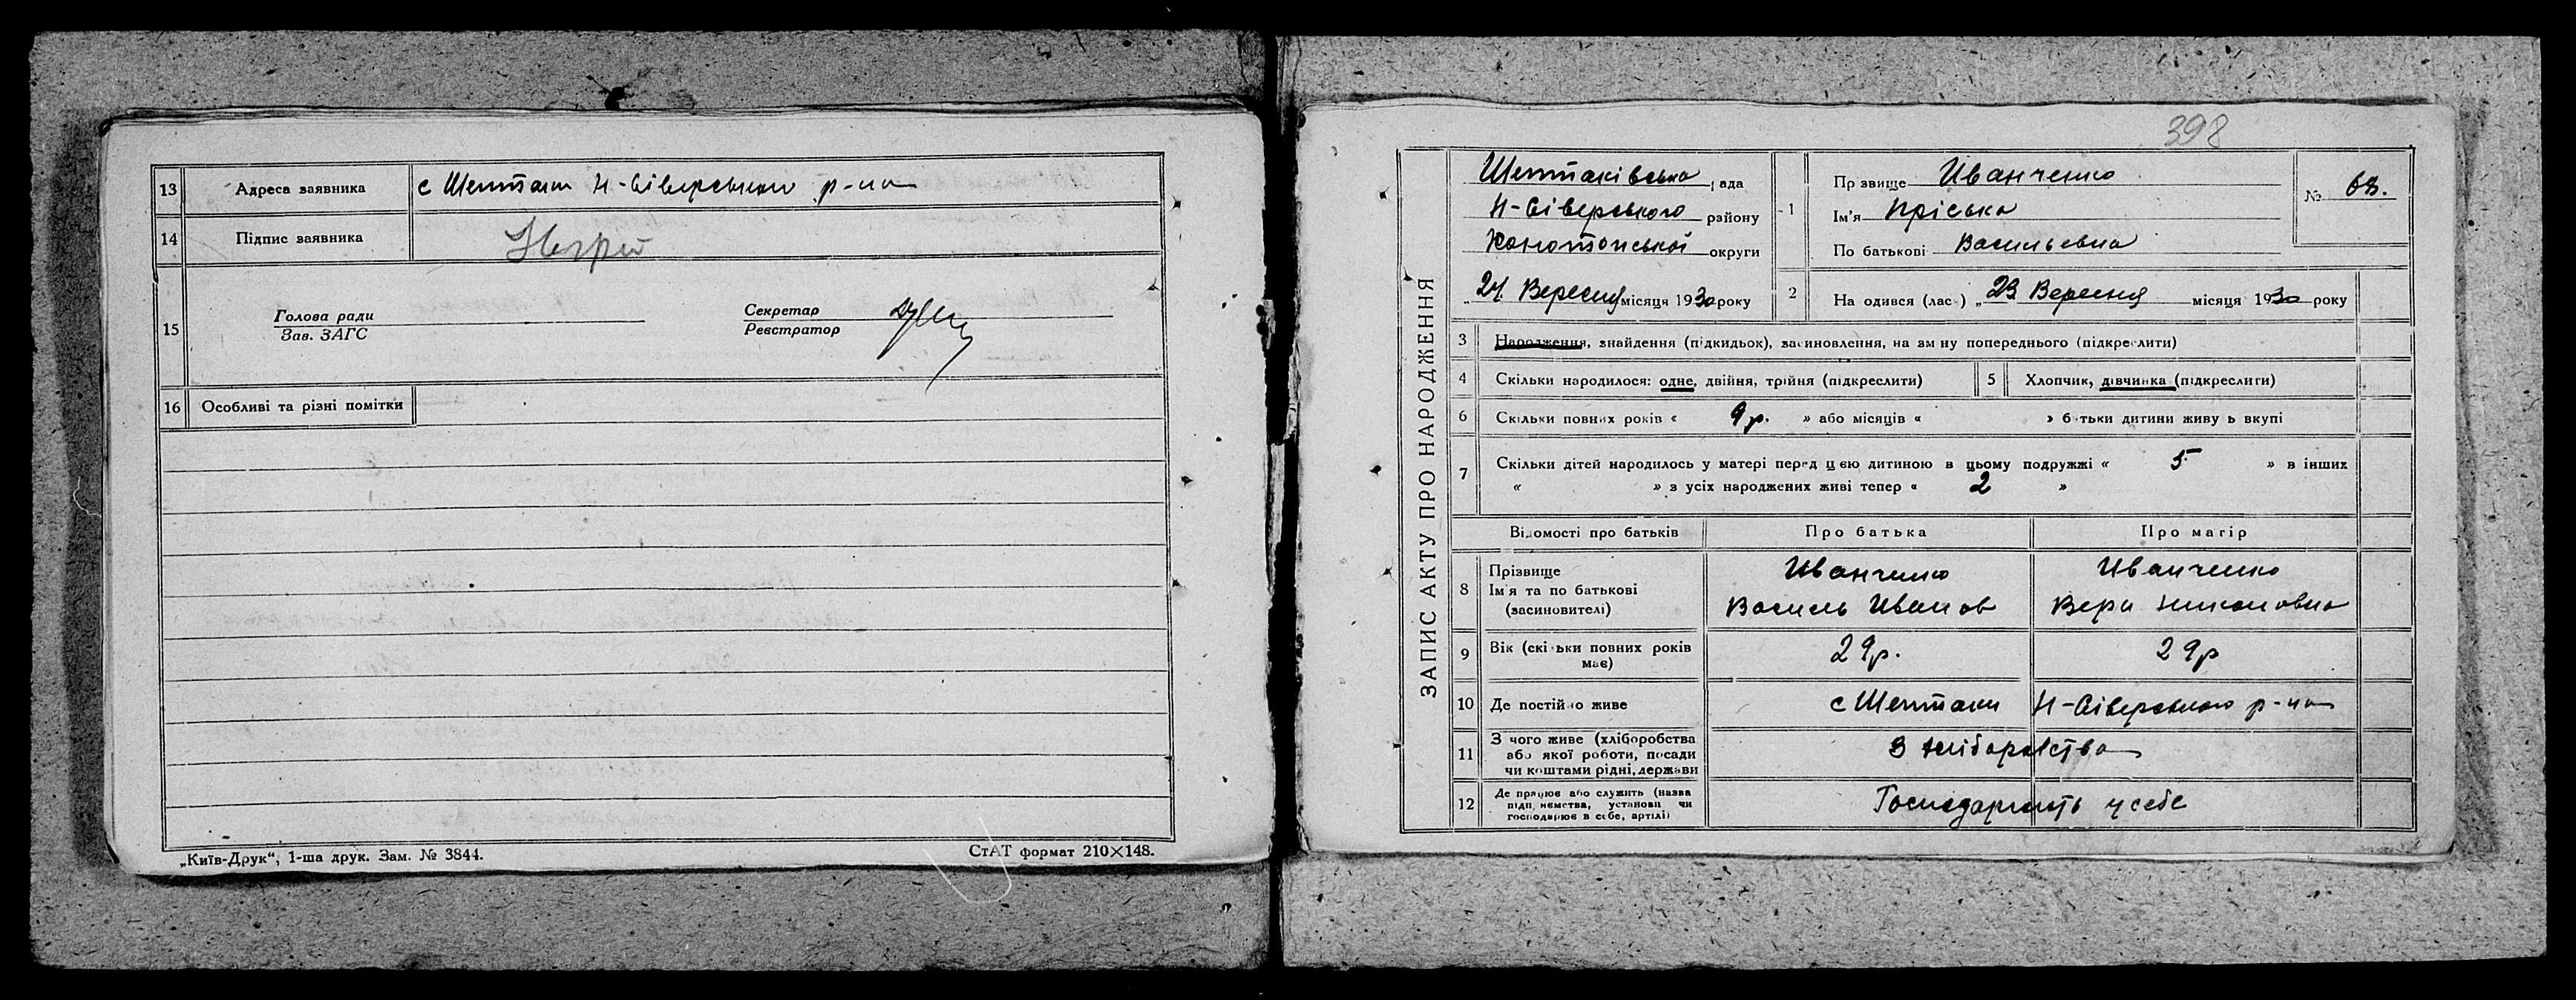 13 Адреса заявника с Шептаки Н-Сіверського р-на
14 Підпис заявника
15 Голова ради
Зав. ЗАГС
Секретар
Реєстратор
16 Особливі та різні помітки
„Київ-Друк“, 1-ша друк. Зам. № 3844.
СтАТ формат 210×148.
398
ЗАПИС АКТУ ПРО НАРОДЖЕННЯ
Шептаківська рада
Н-Сіверського району
Конотопської округи
„24 Вересня місяця 1930 року
1 Прізвище Иванченко
Ім'я Пріська
По батькові Васильевна
№ 68.
2 На одився (лась) „23 Вересня місяця 1930 року
3 Народження, знайдення (підкидьок), засиновлення, на зміну попереднього (підкреслити)
4 Скільки народилося: одне, двійня, трійня (підкреслити)
5 Хлопчик, дівчинка (підкреслити)
6 Скільки повних років « 9 р. » або місяців « » батьки дитини живуть вкупі
7 Скільки дітей народилось у матері перед цією дитиною в цьому подружжі « 5 » в інших
« » з усіх народжених живі тепер « 2 »
Відомості про батьків
Про батька
Про матір
8 Прізвище
Ім'я та по батькові
(засиновителі)
Иванченко
Василь Иванов
Иванченко
Вера Никоновна
9 Вік (скільки повних років
має)
29 р.
29 р
10 Де постійно живе с Шептаки Н-Сіверського р-на
11 З чого живе (хліборобства
або якої роботи, посади
чи коштами рідні, держави
З хліборобства
12 Де працює або служить (назва
підприємства, установи чи
господарює в себе, артілі)
Господарюють у себе